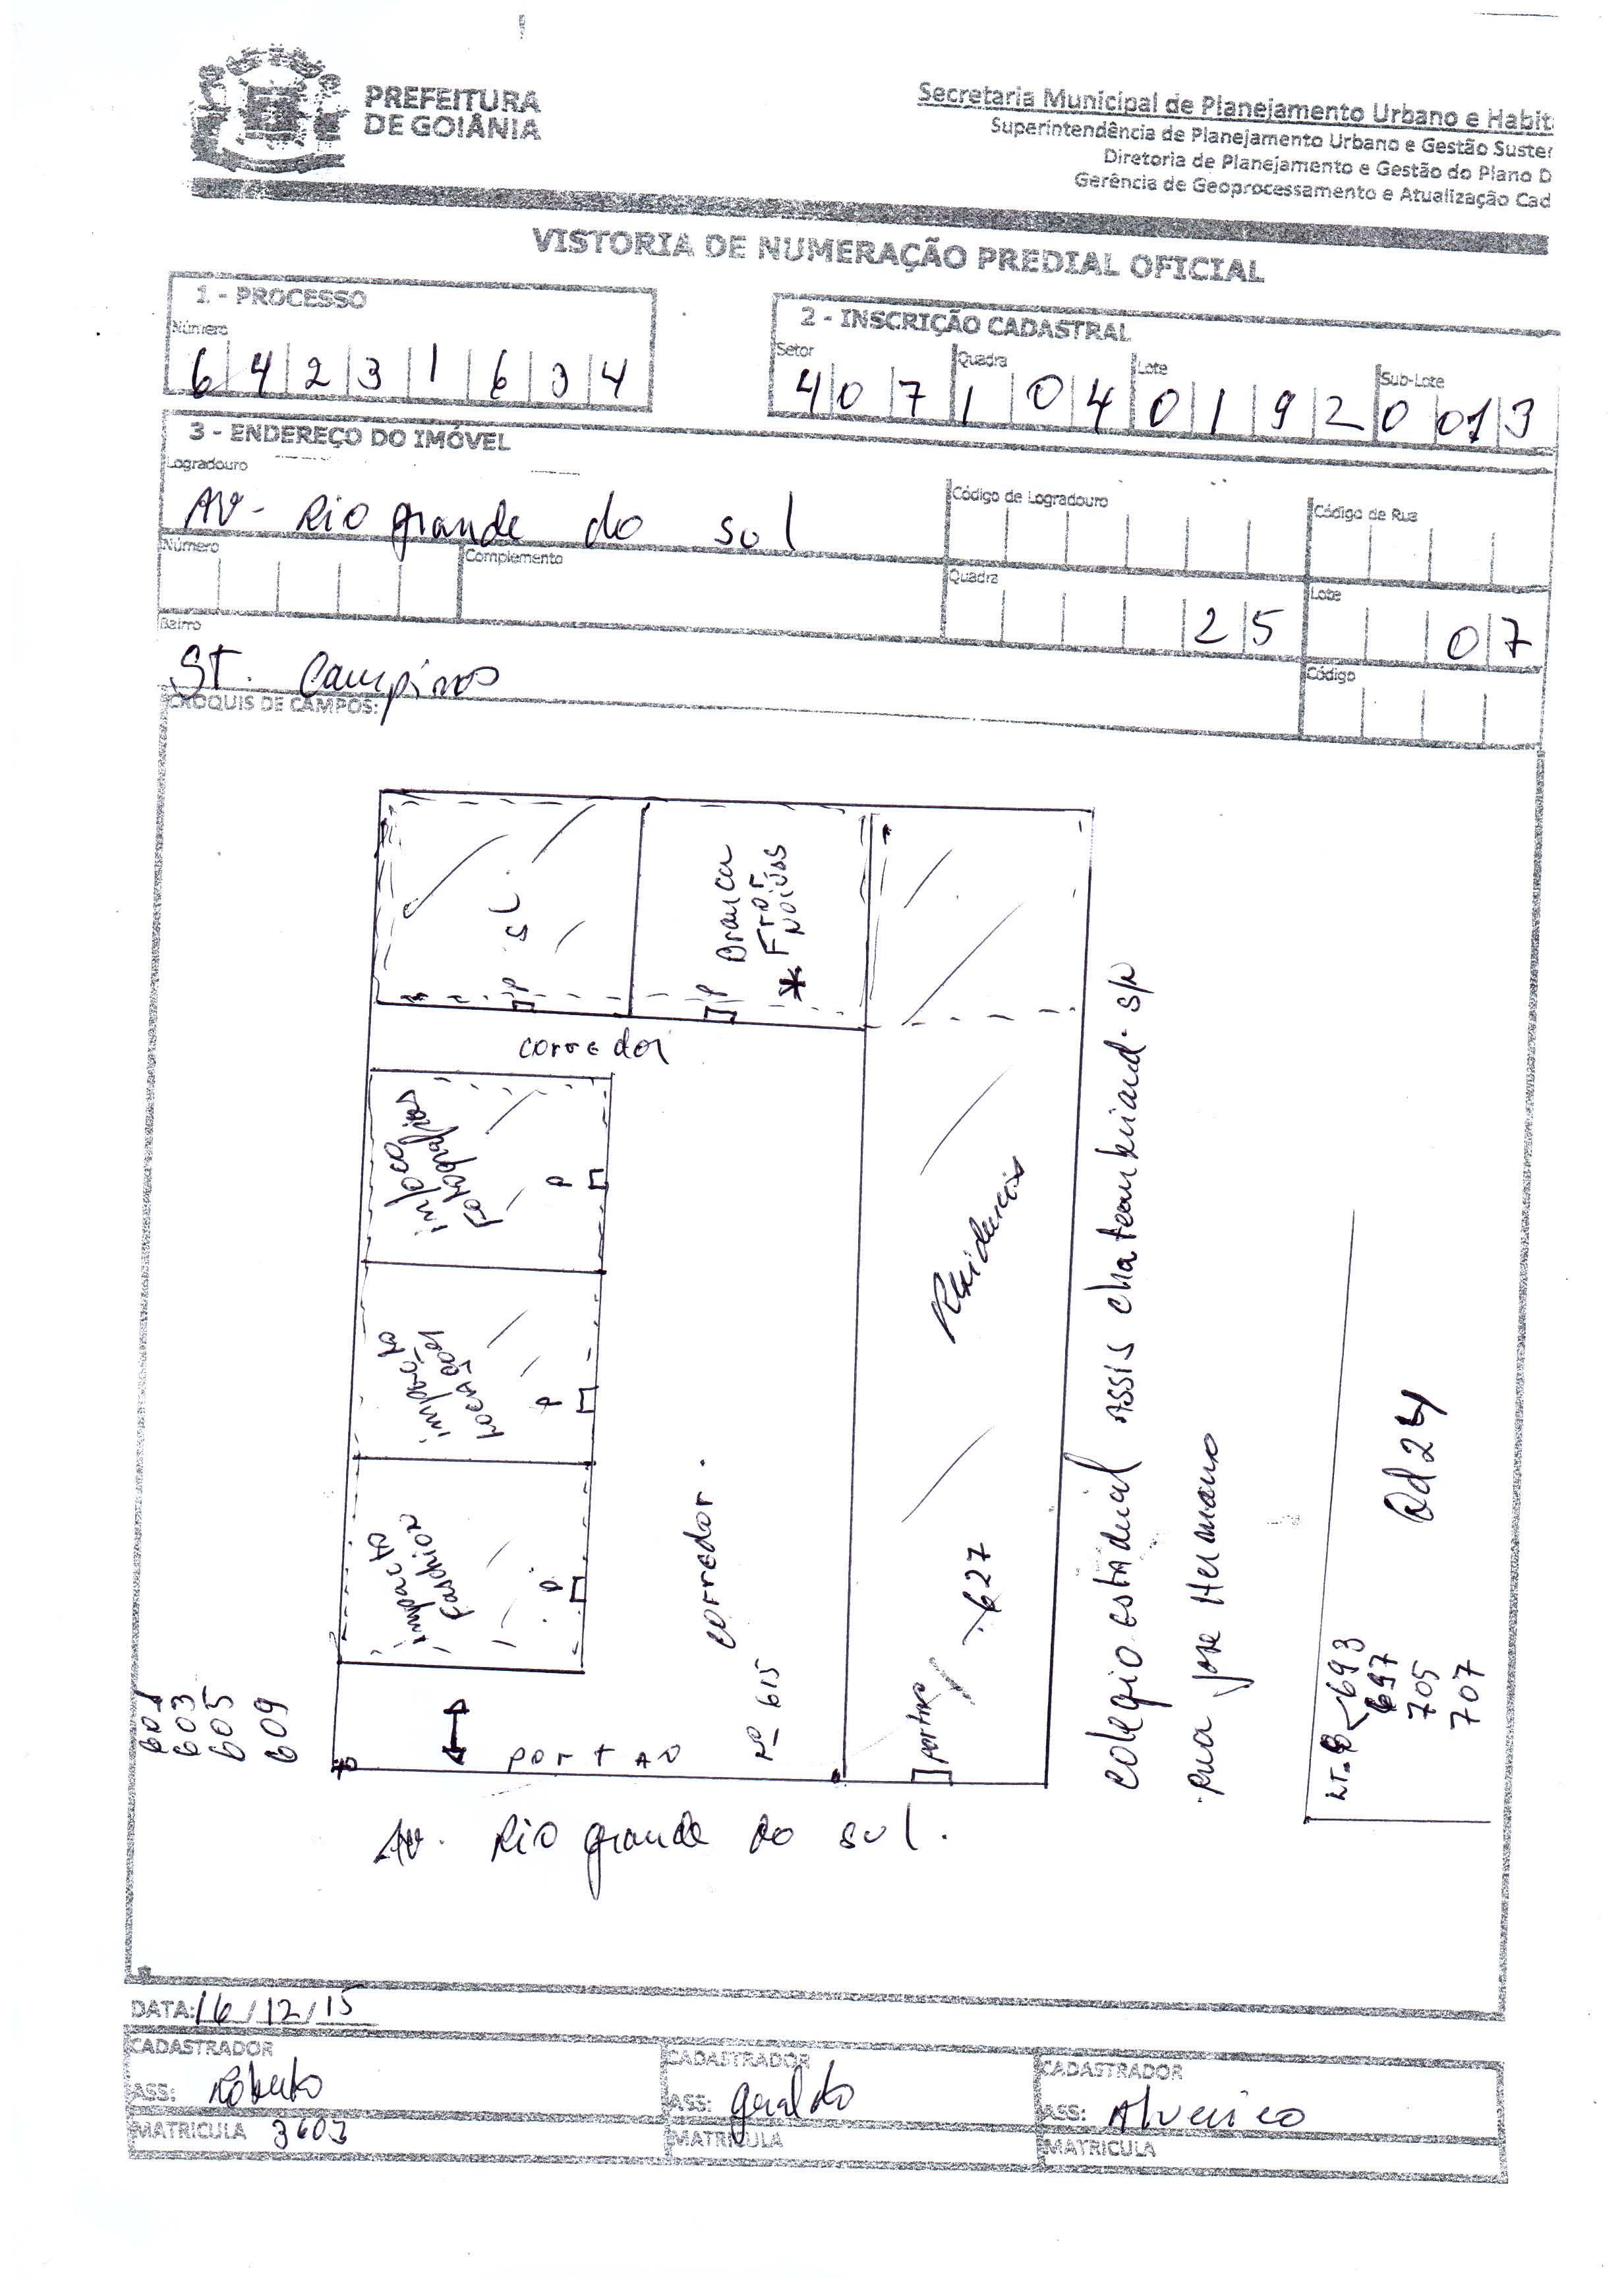 PREFEITURA
DE GOIÂNIA
Secretaria Municipal de Planejamento Urbano e Habit
Superintendência de Planejamento Urbano e Gestão Susten
Diretoria de Planejamento e Gestão do Plano D
Gerência de Geoprocessamento e Atualização Cad
VISTORIA DE NUMERAÇÃO PREDIAL OFICIAL
1 - PROCESSO
Número
6 4 2 3 1 6 3 4
2 - INSCRIÇÃO CADASTRAL
Setor Quadra Lote Sub-Lote
4 0 7 1 0 4 0 1 9 2 0 0 1 3
3 - ENDEREÇO DO IMÓVEL
Logradouro
AV - Rio grande do sul
Código de Logradouro
Código de Rua
Número
Complemento
Quadra
2 5
Lote
0 7
Bairro
ST. Campinas
Código
CROQUIS DE CAMPOS:
SL
P
Branca
Flor
Noivas
*
P
corredor
fotografias
P
impacto
Locações
P
impacto
Faschion
P
corredor.
Nº 615
portão
Residencia
627
portão
601
603
605
609
colegio estadual Assis chateaubriand. S/N
rua jose Hermano
LT. 8 693
697
705
707
Qd 24
Av. Rio grande do sul.
DATA: 16/12/15
CADASTRADOR
ASS: Roberto
MATRICULA 3603
CADASTRADOR
ASS: Geraldo
MATRICULA
CADASTRADOR
ASS:
MATRICULA